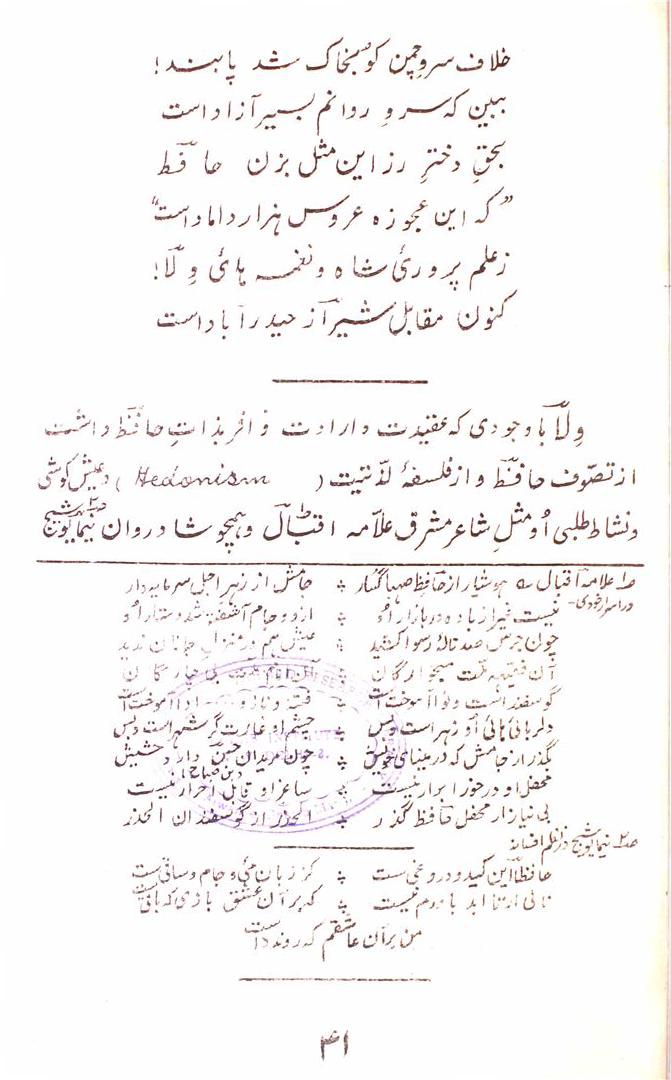 خلاف سروِ چمن کو بخاک شد پابند!
ببین که سروِ روانم بسیر آزاد است
بحقِ دخترِ رز این مثل بزن حافظ
"که این عجوزه عروس هزار داماد است"
ز علم پروریٔ شاه و نغمه هائ وِلا!
کنون مقابل شیراز حیدرآباد است
وِلا با وجودی که عقیدت و ارادت وافر بذاتِ حافظ داشت
از تصوّف حافظ و از فلسفهٔ لذّتیت (Hedonism) و عیش کوشی
و نشاط طلبی اُو مثلِ شاعر مشرق علاّمه اقبال و همچو شادروان نیما یوشیج
ص۱ علامه اقبال هوشیار از حافظِ صهبا گسار جامش از زهرِ اجل سرمایه دار
در اسرار خودی-
نیست غیر از باده در بازار او از دو جام آشفته شد دستار او
چون جرس صد نالهٔ رسوا کشید عیش هم در منزل جانان ندید
آن فقیهِ ملت میخوارگان آن امام امت بیچارگان
گوسفند است و نوا آموخت است
دلربائی هائی او زهر است و بس چشم او غارت گر شهر است و بس
بگذر از جامش که در مینای خویش چون مریدان حسن دارد حشیش
(حسن صباح)
محفل او در خور ابرار نیست ساغر او قابل احرار نیست
بی نیاز از محفل حافظ گذر الحذر از گوسفندان الحذر
ص۲ نیما یوشیج در نظم افسانه
حافظا این کید و دروغی ست کز زبان می و جام و ساقی ست
نالی ار تا ابد باورم نیست که بر آن عشق بازی که باقی ست
من بر آن عاشقم که رونده است
۴۱